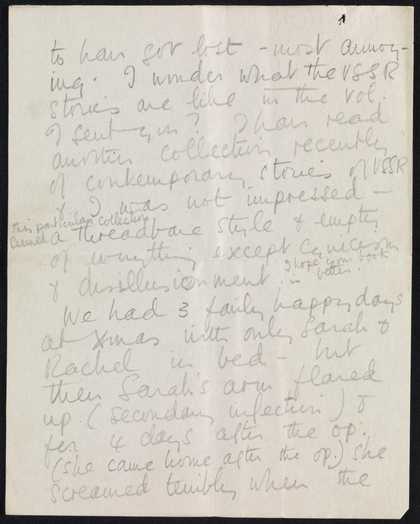 to have got lost - most annoy-
ing. I wonder what the USSR
stories are like in the vol.
I sent you? I have read
another collection recently
of contemporary stories of USSR
& I was not impressed -
this particular collection
a threadbare style & empty
of everything except cynicism
& disillusionment. I hope your book
is better.
We had 3 fairly happy days
at Xmas with only Sarah &
Rachel in bed - but
then Sarah's arm flared
up (secondary infection) &
for 4 days after the op.
(she came home after the op.) she
screamed terribly when the